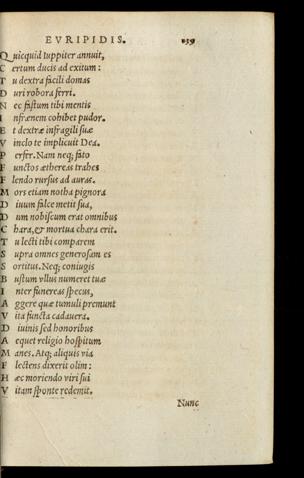 EVRIPIDIS. 139
Q uicquid Iuppiter annuit,
C ertum ducis ad exitum:
T u dextra facili domas
D uri robora ferri.
N ec fastum tibi mentis
I nfrænem cohibet pudor.
E t dextræ infragili suæ
V inclo te implicuit Dea.
P erfer. Nam neq; fato
F unctos æthereas trahes
F lendo rursus ad auras.
M ors etiam notha pignora
D iuum falce metit sua,
D um nobiscum erat omnibus
C hara, & mortua chara erit.
T u lecti tibi comparem
S upra omnes generosam es
S ortitus. Neq; coniugis
B ustum vllus numeret tuæ
I nter funereas specus,
A ggere quæ tumuli premunt
V ita functa cadauera.
D iuinis sed honoribus
A equet religio hospitum
M anes. Atq; aliquis via
F lectens dixerit olim:
H æc moriendo viri sui
V itam sponte redemit.
Nunc